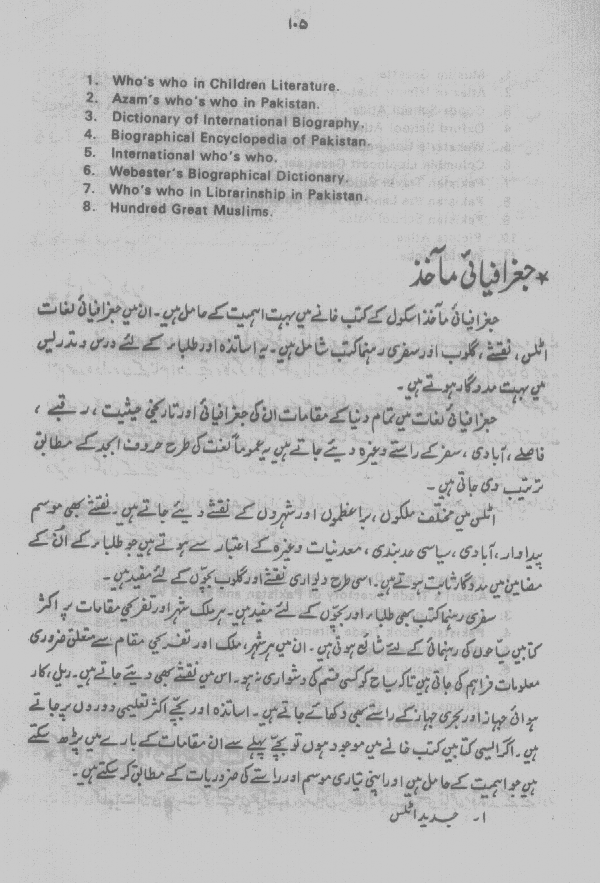 ۱۰۵
1. Who's who in Children Literature.
2. Azam's who's who in Pakistan.
3. Dictionary of International Biography.
4. Biographical Encyclopedia of Pakistan.
5. International who's who.
6. Webester's Biographical Dictionary.
7. Who's who in Librarinship in Pakistan.
8. Hundred Great Muslims.
* جغرافیائی مآخذ
جغرافیائی مآخذ اسکول کے کتب خانے میں بہت اہمیت کے حامل ہیں۔ ان میں جغرافیائی لغات
اٹلس، نقشے، گلوب اور سفری رہنما کتب شامل ہیں۔ یہ اساتذہ اور طلباء کے لئے درس و تدریس
میں بہت مددگار ہوتے ہیں۔
جغرافیائی لغات میں تمام دنیا کے مقامات ان کی جغرافیائی اور تاریخی حیثیت، رقبے،
فاصلے، آبادی، سفر کے راستے وغیرہ دیئے جاتے ہیں یہ عموماً لغت کی طرح حروف ابجد کے مطابق
ترتیب دی جاتی ہیں۔
اٹلس میں مختلف ملکوں، براعظموں اور شہروں کے نقشے دیئے جاتے ہیں۔ نقشے بھی موسم
پیداوار، آبادی، سیاسی حد بندی، معدنیات وغیرہ کے اعتبار سے ہوتے ہیں جو طلباء کے ان کے
مضامین میں مددگار ثابت ہوتے ہیں۔ اسی طرح دیواری نقشے اور گلوب بچوں کے لئے مفید ہیں۔
سفری رہنما کتب بھی طلباء اور بچوں کے لئے مفید ہیں۔ ہر ملک شہر اور تفریحی مقامات پر اکثر
کتابیں سیاحوں کی رہنمائی کے لئے شائع ہوتی ہیں۔ ان میں ہر شہر، ملک اور تفریحی مقام سے متعلق ضروری
معلومات فراہم کی جاتی ہیں تاکہ سیاح کو کسی قسم کی دشواری نہ ہو۔ اس میں نقشے بھی دیئے جاتے ہیں۔ ریل، کار
ہوائی جہاز اور بحری جہاز کے راستے بھی دکھائے جاتے ہیں۔ اساتذہ اور بچے اکثر تعلیمی دوروں پر جاتے
ہیں۔ اگر ایسی کتابیں کتب خانے میں موجود ہوں تو بچے پہلے سے ان مقامات کے بارے میں پڑھ سکتے
ہیں جو اہمیت کے حامل ہیں اور اپنی تیاری موسم اور راستے کی ضروریات کے مطابق کر سکتے ہیں۔
۱۔ جدید اٹلس